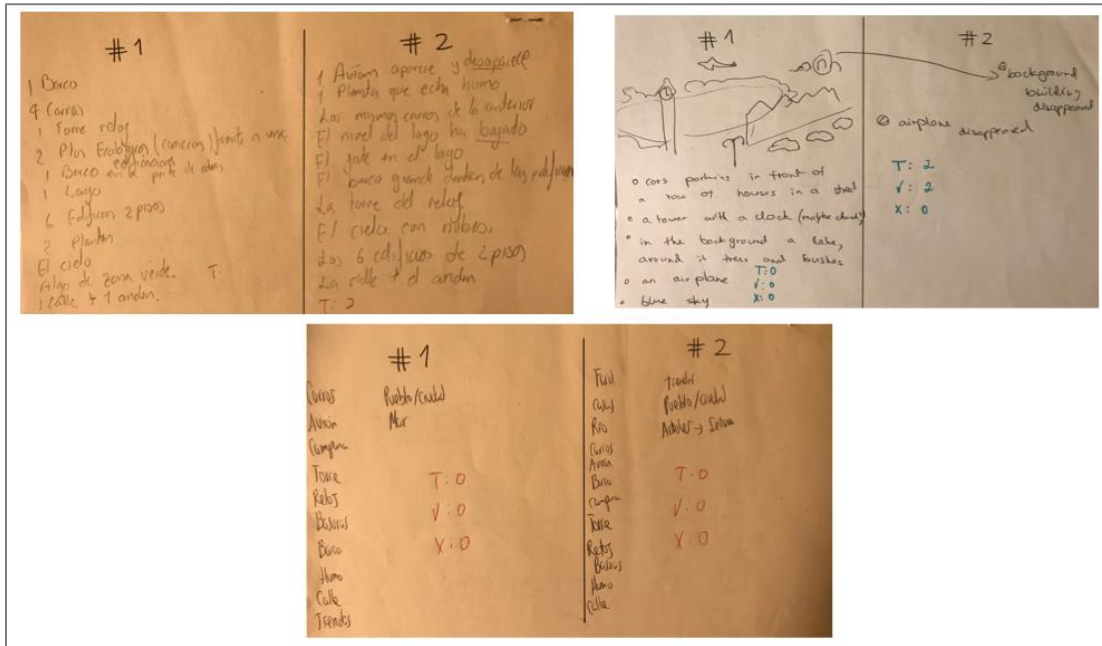 #1
1 Barco
4 Carros
1 Torre reloj
2 Ptos Ecológicos (canecas) frente a una
edificación
1 Barco en la parte de atrás
1 Lago
6 Edificios 2 pisos
2 Plantas
El cielo
Algo de zona verde.
1 Calle + 1 andén.
T:
#2
1 Avión aparece y desaparece
1 Planta que echa humo
Los mismos carros de la anterior
El nivel del lago ha bajado
El en el lago
El barco grande detrás de los edificios
La torre del reloj
El cielo con nubes.
Los 6 edificios de 2 pisos
La calle + el andén
T: 2
#1
o cars parking in front of
a row of houses in a street
o a tower with a clock (maybe church)
o in the background a lake,
around it trees and bushes
o an airplane
o blue sky
T: 0
√: 0
X: 0
#2
background
building
disappeared
airplane disappeared
T: 2
√: 2
X: 0
#1
Carros
Avión
Campana
Torre
Reloj
Basuras
Barco
Humo
Calle
Tiendas
Pueblo/ciudad
Mar
T: 0
√: 0
X: 0
#2
Farol
Casas
Río
Carros
Avión
Barco
Campana
Torre
Reloj
Basuras
Humo
Calle
Pueblo/ciudad
Arboles → Selva
T: 0
√: 0
X: 0